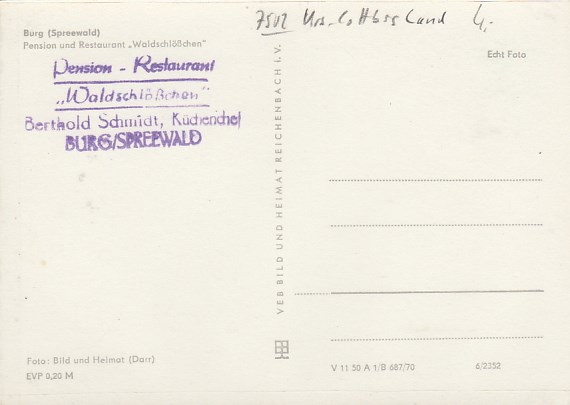 7502 Krs. Cottbus Land 4,-
Burg (Spreewald)
Pension und Restaurant „Waldschlößchen"
Echt Foto
Pension - Restaurant
„Waldschlößchen"
Berthold Schmidt, Küchenchef
BURG/SPREEWALD
VEB BILD UND HEIMAT REICHENBACH i. V.
Foto: Bild und Heimat (Darr)
EVP 0,20 M
V 11 50 A 1/B 687/70
6/2352